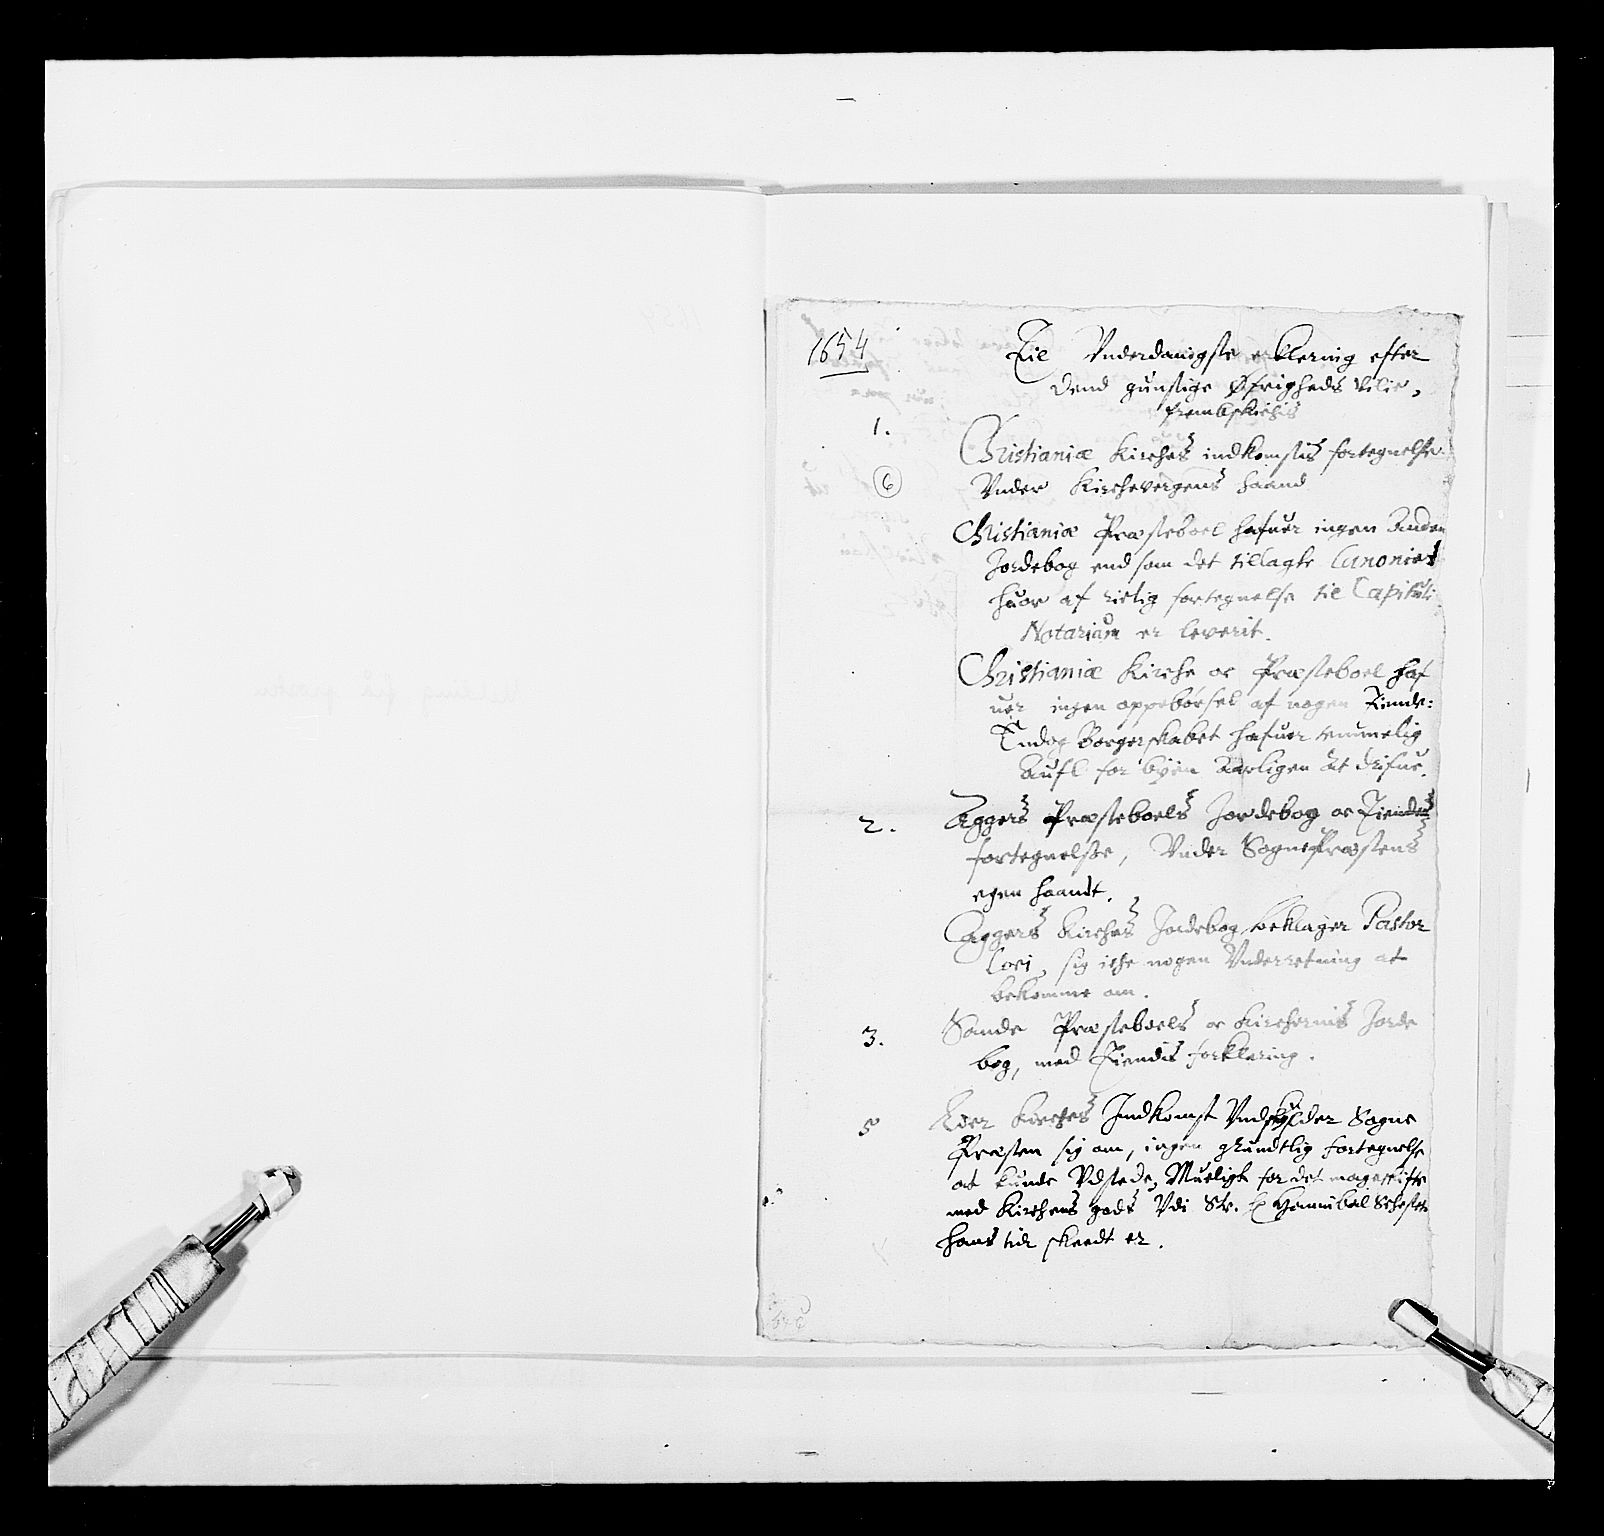 1654
Til Vnderdanigste erklering efter
dend gunstige Øfrigheds vilie,
frembskickis
1.
Christianiæ Kirches indkomstis fortegnelse
6
Vnder Kirchevergens haand
Christianiæ Præsteboel hafuer ingen Anden
Jordebog end som det tillagte Canonicat
huor af rictig fortegnelse til Capituli
Notarium er leverit.
Christianiæ Kirche oc Præsteboel haf
uer ingen oppebørsel af nogen Tiende:
Endog Borgerskabet hafuer temmelig
Aufl for byen Aarligen at drifue.
2.
Aggers Præsteboels Jordebog oc Tiendes
fortegnelsse, Vnder SognePræstens
egen haandt.
Aggers Kirches Jordebog beklager Pastor
Loci, sig iche nogen Vnderretning at
bekomme om.
3.
Sande Præsteboels oc Kirchernis Jorde
bog, med Tiendis forklaring.
5
Kirches Indkomst Vndskylder Sogne
Præsten sig om, ingen grundtlig fortegnelse
at kunde Vdstede, Mueligt for det mageskifte
med Kirchens gods Vdi Str. H Hannibal Sehesteds
hans tid skeedt er.